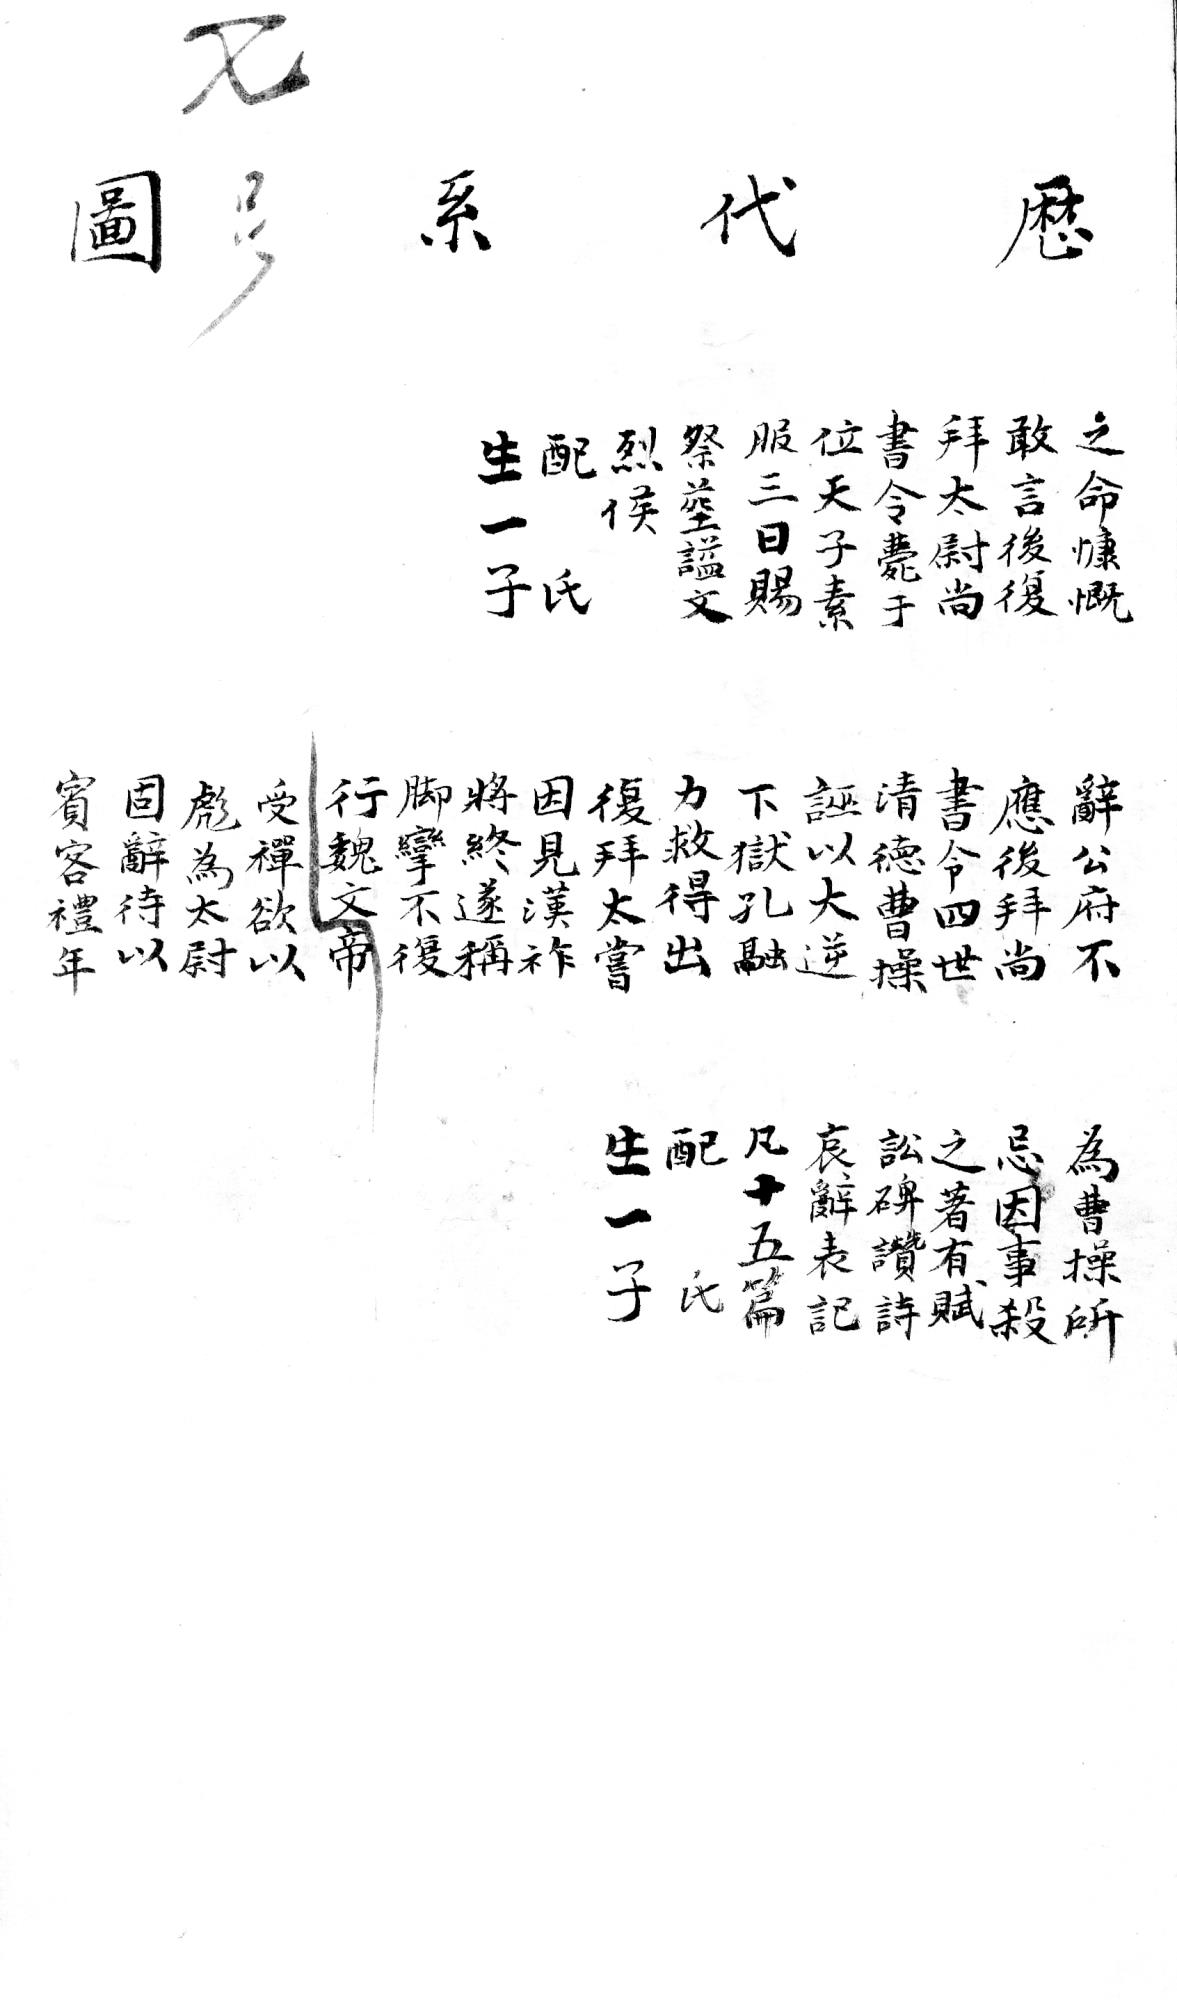 歷代系圖
之命慷慨
敢言後復
拜太尉尚
書令薨于
位天子素
服三日賜
祭塋謚文
烈侯
配 氏
生一子
辭公府不
應後拜尚
書令四世
清德曹操
誣以大逆
下獄孔融
力救得出
復拜太嘗
因見漢祚
將終遂稱
脚攣不復
行魏文帝
受禪欲以
彪為太尉
固辭待以
賓客禮年
為曹操所
忌因事殺
之著有賦
訟碑讚詩
哀辭表記
凡十五篇
配 氏
生一子